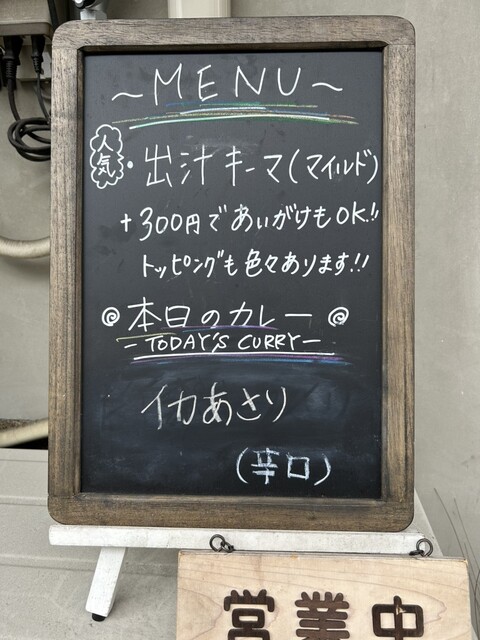 ～MENU～
人気・出汁キーマ(マイルド)
+300円であいがけもOK!!
トッピングも色々あります!!
本日のカレー
-TODAY'S CURRY-
イカあさり
(辛口)
営業中